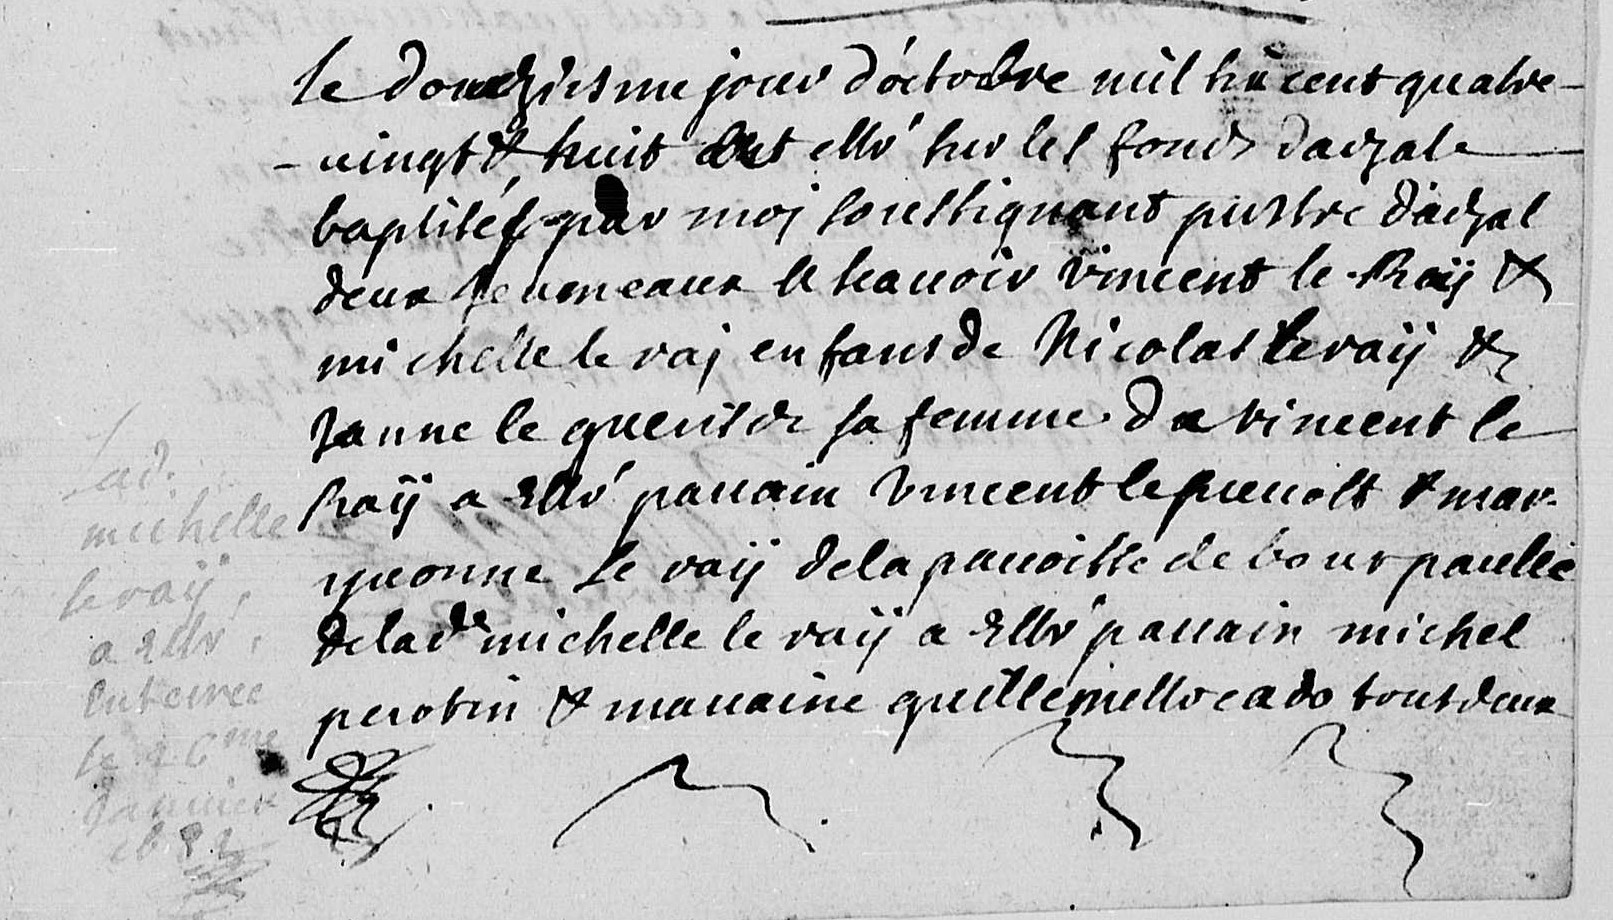 le douziesme jour d'octobre mil six cent quatre-
-vingt & huit ont esté sur les fonds d'adzal
baptisés par moi soussignant prestre d'adzal
deux jeumeaux ascavoir Vincent le Raÿ &
michelle le raj enfans de Nicolas le raÿ &
Janne le sa femme. Du vincent le
Raÿ a esté parrain Vincent le & mar-
yvonne le raÿ de la parroisse de bourpaulle
de lad. michelle le raÿ a esté parrain michel
perobin & marraine guillemette cado tous deux
Lad.
michelle
le raÿ
a esté
enterree
le 26me
Janvier